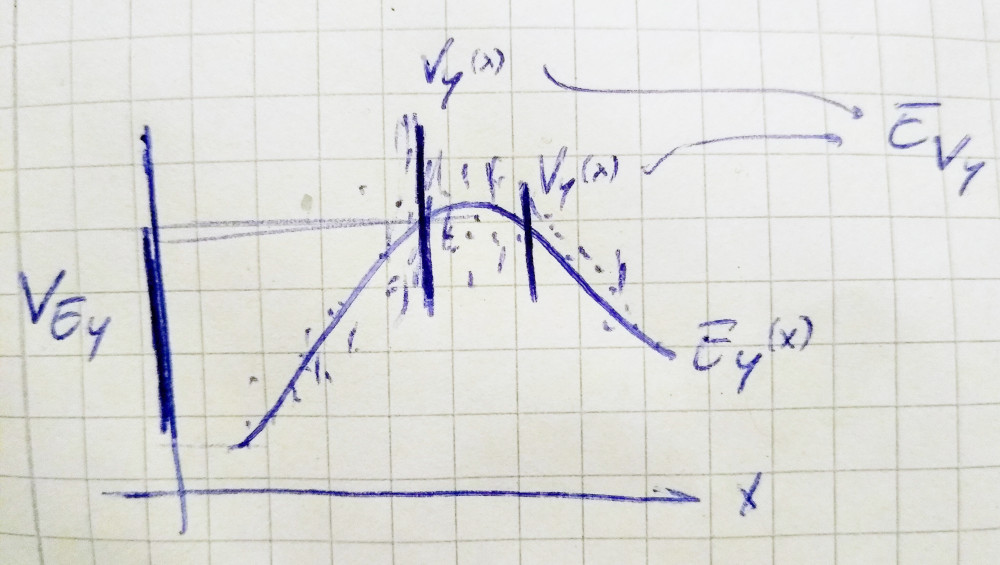 Vy(x)
E̅Vy
Vy(x)
VE̅y
E̅y(x)
x